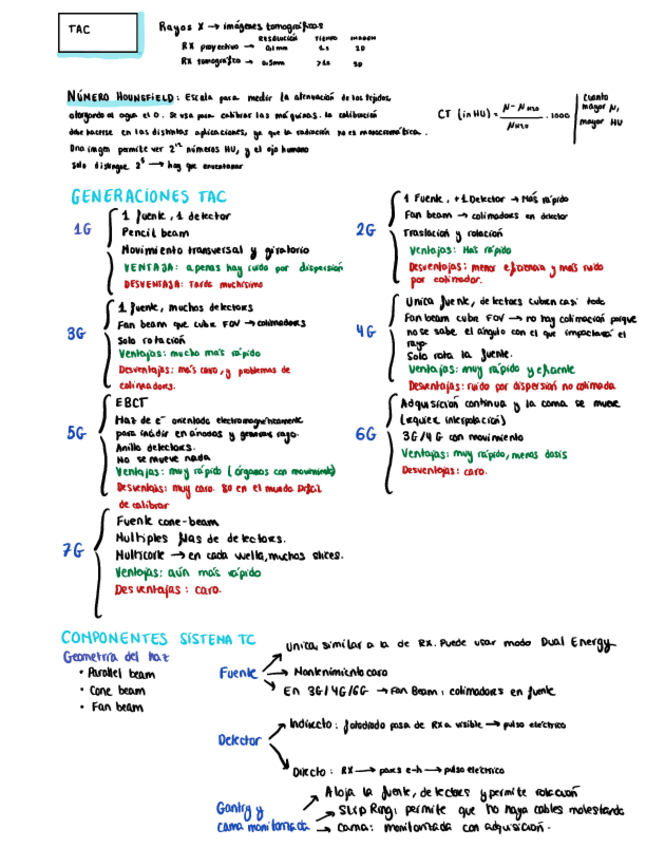 TAC
Rayos X → imágenes tomográficas
RESOLUCIÓN TIEMPO IMAGEN
RX proyectivo → 0,1mm 1s 2D
RX tomográfico → 0,5mm >1s 3D
NÚMERO HOUNSFIELD: Escala para medir la atenuación de los tejidos,
otorgando al agua el 0. Se usa para calibrar las máquinas. La calibración
debe hacerse en las distintas aplicaciones, ya que la radiación no es monocromática.
Una imagen permite ver 2¹² números HU, y el ojo humano
solo distingue 2⁵ → hay que enventanar
CT (in HU) = μ - μH2O / μH2O · 1000
cuanto
mayor μ,
mayor HU
GENERACIONES TAC
1G
1 fuente, 1 detector
Pencil beam
Movimiento transversal y giratorio
VENTAJA: apenas hay ruido por dispersión
DESVENTAJA: Tarda muchísimo
2G
1 Fuente, +1 Detector → Más rápido
Fan beam → colimadores en detector
Traslación y rotación
Ventajas: Más rápido
Desventajas: menor eficiencia y más ruido
por colimador.
3G
1 fuente, muchos detectores
Fan beam que cubre FOV → colimadores
Solo rotación
Ventajas: mucho más rápido
Desventajas: más caro, y problemas de
colimadores.
4G
Unica fuente, detectores cubren casi todo
Fan beam cubre FOV → no hay colimación porque
no se sabe el ángulo con el que impactará el
rayo
Solo rota la fuente.
Ventajas: muy rápido y eficiente
Desventajas: ruido por dispersión no colimada
5G
EBCT
Haz de e⁻ orientado electromagnéticamente
para incidir en ánodos y generar rayo.
Anillo detectors.
No se mueve nada
Ventajas: muy rápido (órganos con movimiento)
Desventajas: muy caro. 80 en el mundo. Difícil
de calibrar
6G
Adquisición continua y la cama se mueve
(requiere interpolación)
3G/4G con movimiento
Ventajas: muy rápido, menos dosis
Desventajas: caro.
7G
Fuente cone-beam
Multiples filas de detectores.
Multicorte → en cada vuelta, muchos slices.
Ventajas: aún más rápido
Desventajas: caro.
COMPONENTES SISTEMA TC
Geometría del haz
• Parallel beam
• Cone beam
• Fan beam
Fuente
Unica, similar a la de RX. Puede usar modo Dual Energy
Mantenimiento caro
En 3G/4G/6G → Fan Beam: colimadores en fuente
Detector
Indirecto: fotodiodo pasa de RX a visible → pulso eléctrico
Directo: RX → pares e-h → pulso eléctrico
Gantry y
cama monitorizada
Aloja la fuente, detectores y permite rotación
Slip Ring: permite que no haya cables molestando
Cama: monitorizada con adquisición.